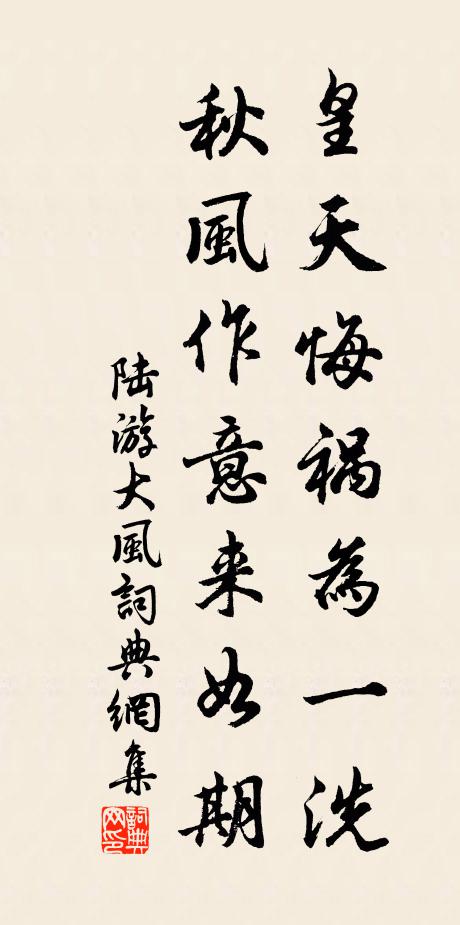 皇天悔禍為一洗
秋風作意来如期
陆游大風詞典網集
詞典網印